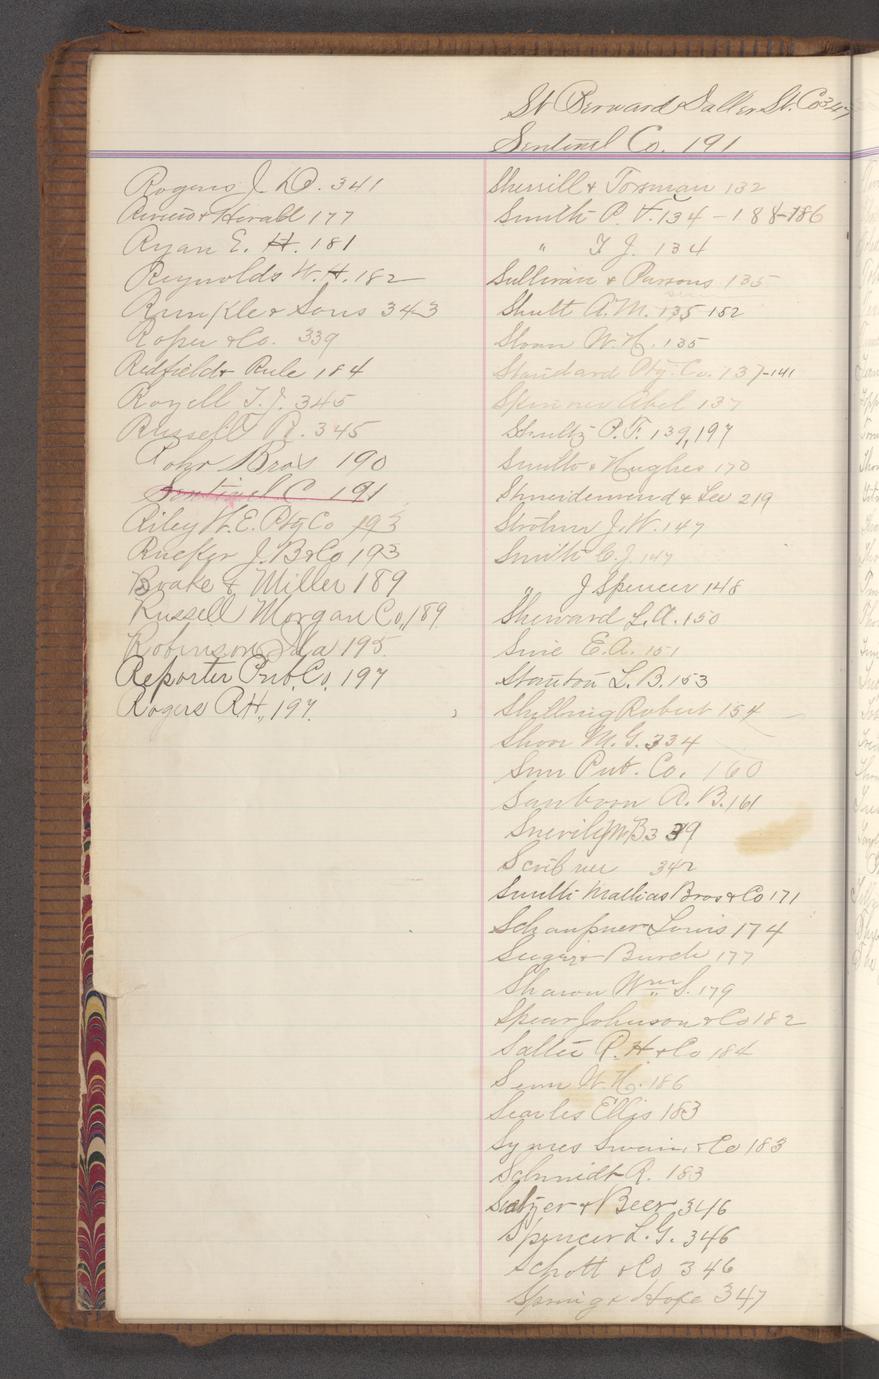 St Bernard Co 347
Sentinel Co. 191
Rogers J. D. 341
Review & Herald 177
Ryan E. H. 181
Reynolds W. H. 182
Runkle & Sons 343
Roper & Co. 339
Redfield & Rule 184
Royell T. J. 345
Russell R. 345
Rohr Bros 190
Sentinel C 191
Riley W. E. Ptg Co 193
Rucker J. B & Co 193
Roake & Miller 189
Russell Morgan Co., 189
Robinson Ida 195
Reporter Pub. Co. 197
Rogers R. H., 197.
Sherrill & 132
Smith P. F. 134 - 188-186
" T J. 134
Sullivan & Parsons 135
Shutt A. M. 135-152
Sloan W. H. 135
Standard Ptg. Co. 137-141
Spooner Abel 137
Shultz P. T. 139, 197
Smith & Hughes 170
Shneidewend & Lee 219
Strohm J. W. 147
Smith C. J. 147
" J Spencer 148
Sherward L. A. 150
E. A. 151
Stanton L. B. 153
Shilling Robert 154
Shoor M. G. 334
Sun Pub. Co. 160
Sanborn A. B. 161
Snevily W B 339
Scribner 342
Smith Mathias Bros & Co 171
Schaupner Louis 174
& Burch 177
Sharon Wm S. 179
Spear Johnson & Co 182
Saltee P. H. & Co 184
Senn W. H. 186
Searles Ellis 183
Symes Swain & Co 183
Schmidt R. 183
Sultzer & Beer 346
Spencer L. G. 346
Schott & Co 346
Spring & Hope 347